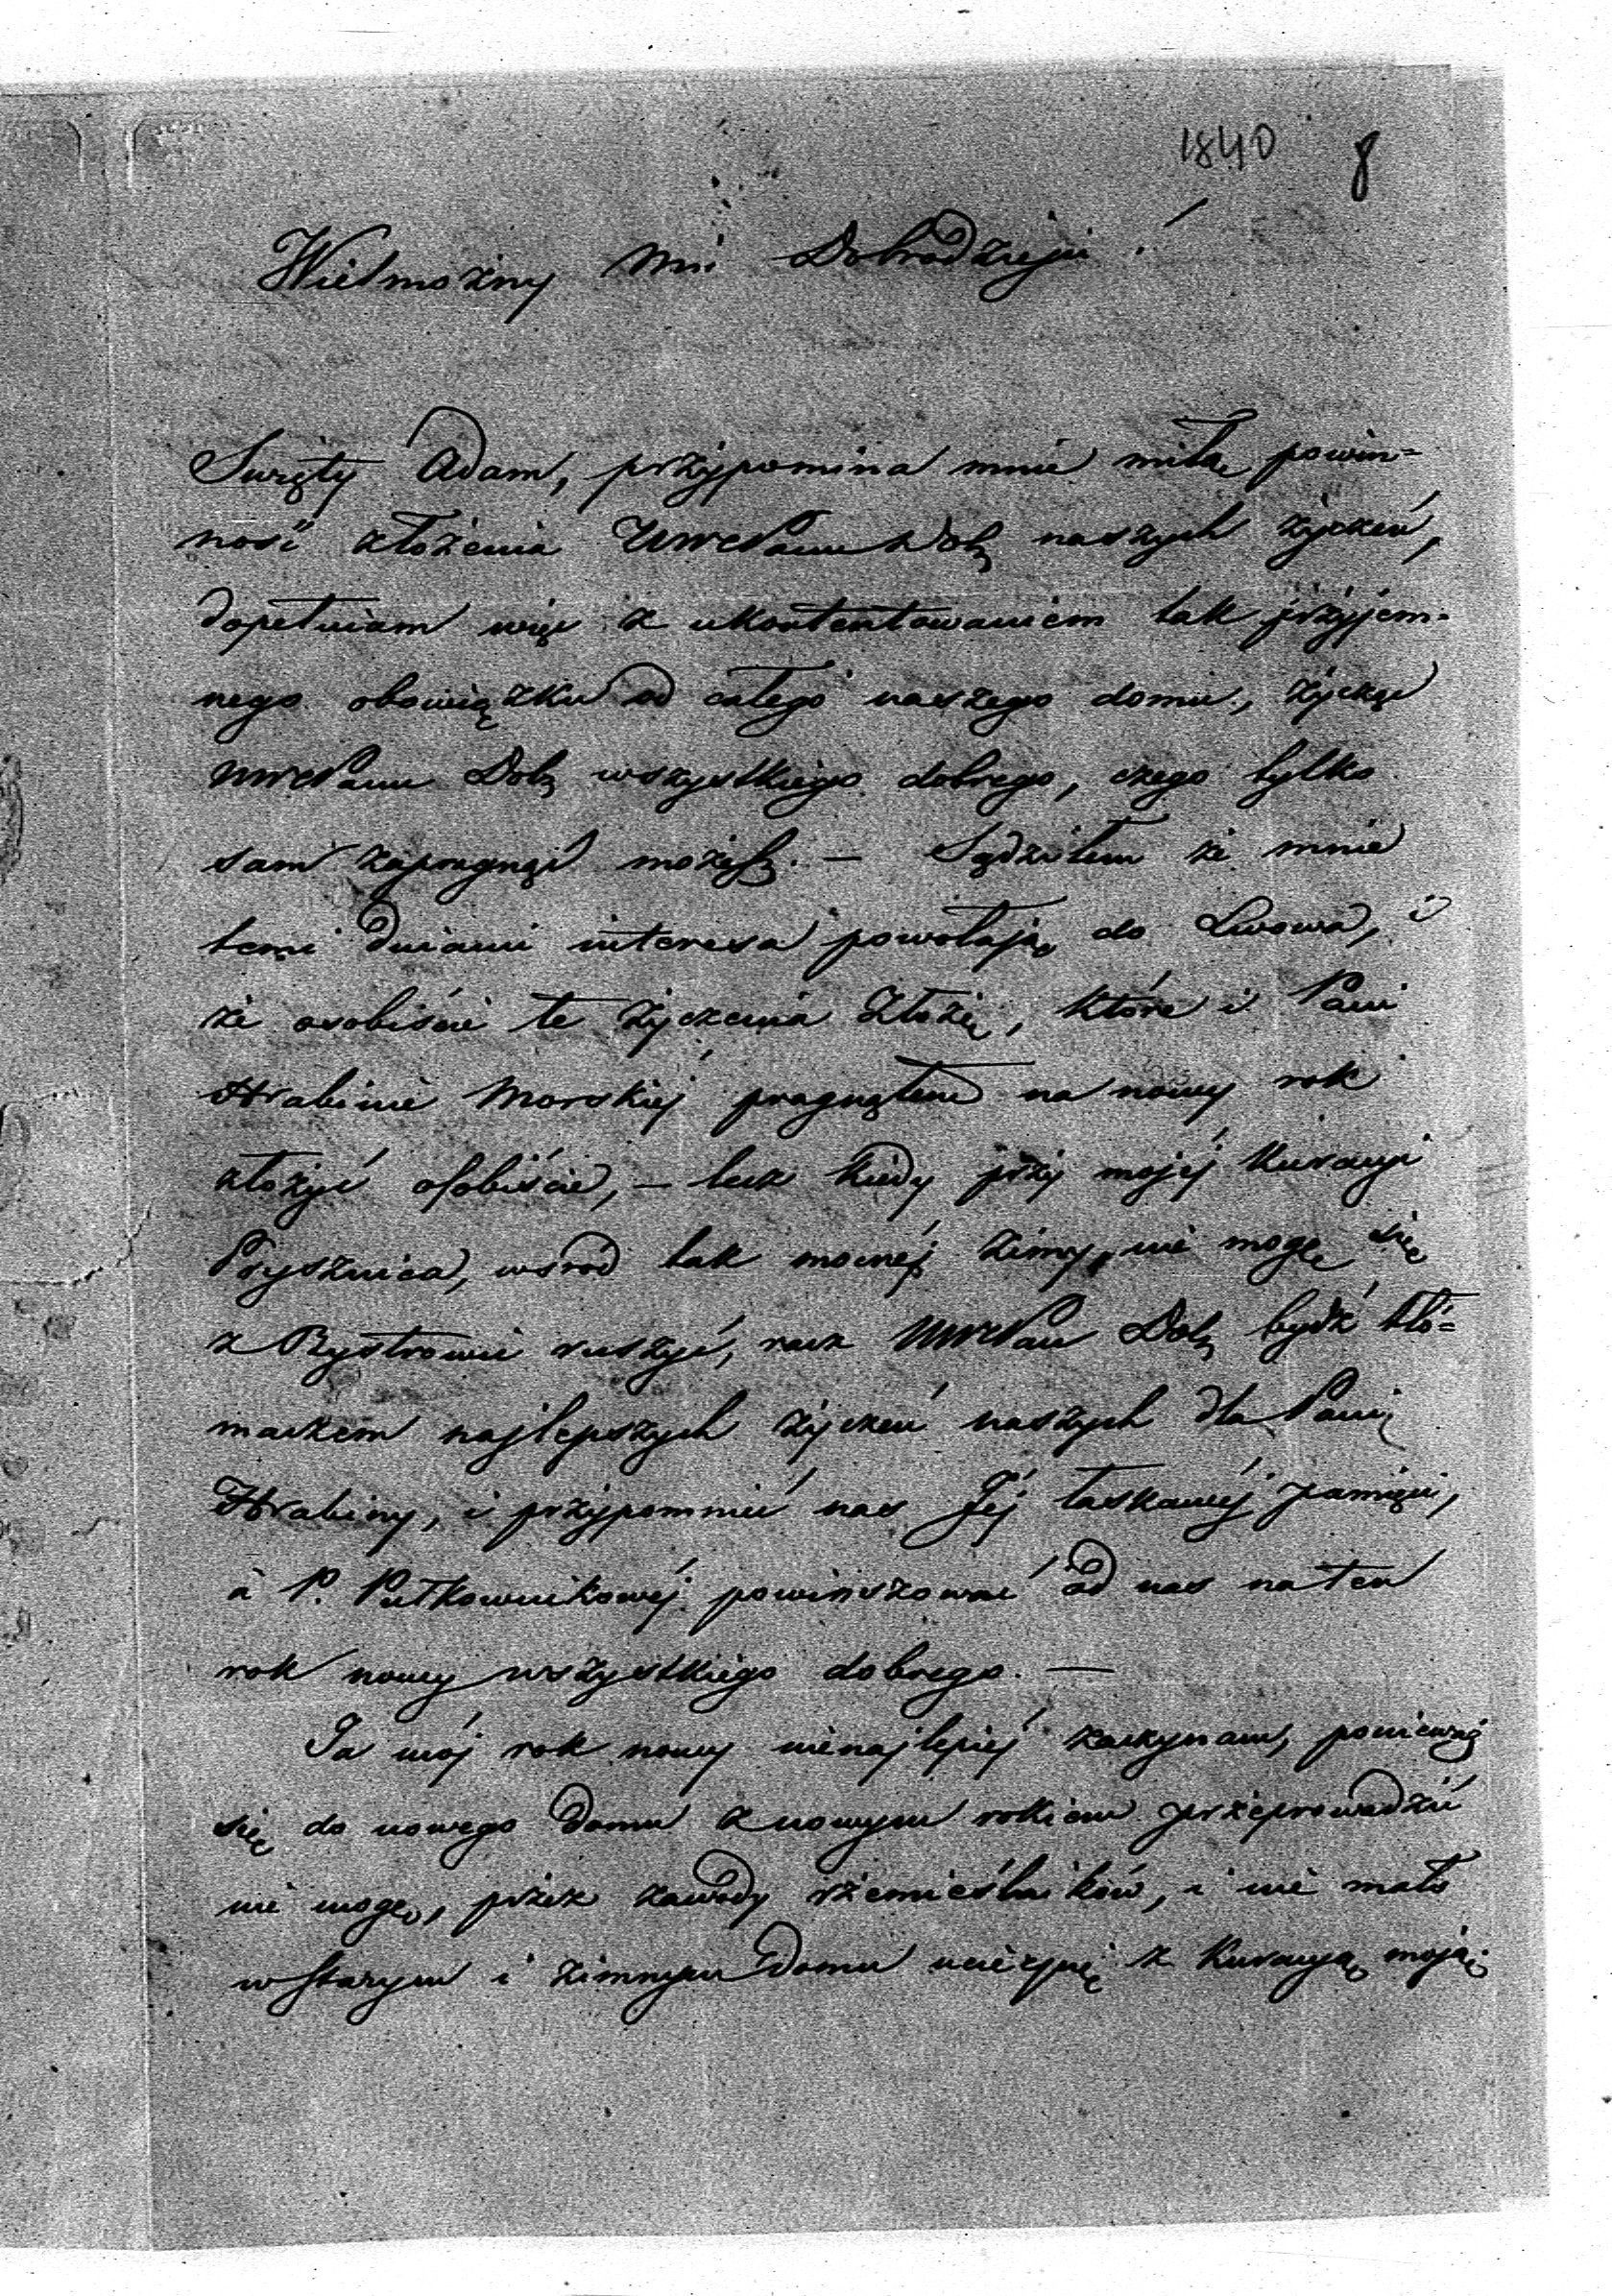 1840 8
Wielmożny Mci Dobrodzieju!
Święty Adam, przypomina mnie miłą powin=
ność złożenia UWCPanu Dob. naszych życzeń,
dopełniam więc z ukontentowaniem tak przyjem=
nego obowiązku od całego naszego domu, życząc
UWCPanu Dob. wszystkiego dobrego, czego tylko
sam zapragnąć możesz. — Sądziłem że mnie
temi dniami interesa powołają do Lwowa, i
że osobiście te życzenia złożę, które i Pani
Hrabinie Morskiéj pragnąłem na nowy rok
złożyć osobiście, — lecz kiedy przy mojéj kuracyi
Prysznica, wśród tak mocnéj zimy, nie mogę się
z Bystrowic ruszyć, racz UWCPan Dob. bydź tłó=
maczem najlepszych życzeń naszych dla Pani
Hrabiny, i przypomnieć nas Jéj łaskawéj pamięci,
a P. Pułkownikowéj powinszować od nas na ten
rok nowy wszystkiego dobrego. —
Ja mój rok nowy nienajlepiéj zaczynam, ponieważ
się do nowego domu z nowym rokiem przeprowadzić
nie mogę, przez zawody rzemieślników, i nie mało
w starym i zimnym domu ucierpię z kuracyą moją.